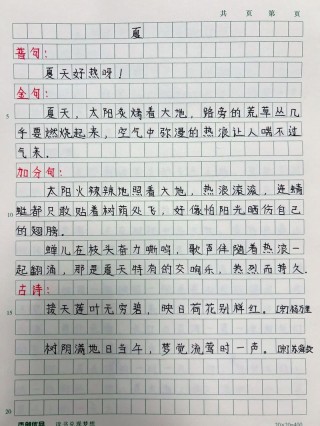 共 页 第 页
夏
普句：
夏天好热呀！
金句：
夏天，太阳炙烤着大地，路旁的荒草丛几
5
乎要燃烧起来，空气中弥漫的热浪让人喘不过
气来。
加分句：
太阳火辣辣地照着大地，热浪滚滚，连蜻
10
蜓都只敢贴着树荫处飞，好像怕阳光晒伤自己
的翅膀。
蝉儿在枝头奋力嘶鸣，歌声伴随着热浪一
起翻涌，那是夏天特有的交响乐，热烈而持久。
古诗：
15
接天莲叶无穷碧，映日荷花别样红。[宋]杨万里
树阴满地日当午，梦觉流莺时一声。[宋]苏舜钦
20
20×20=400